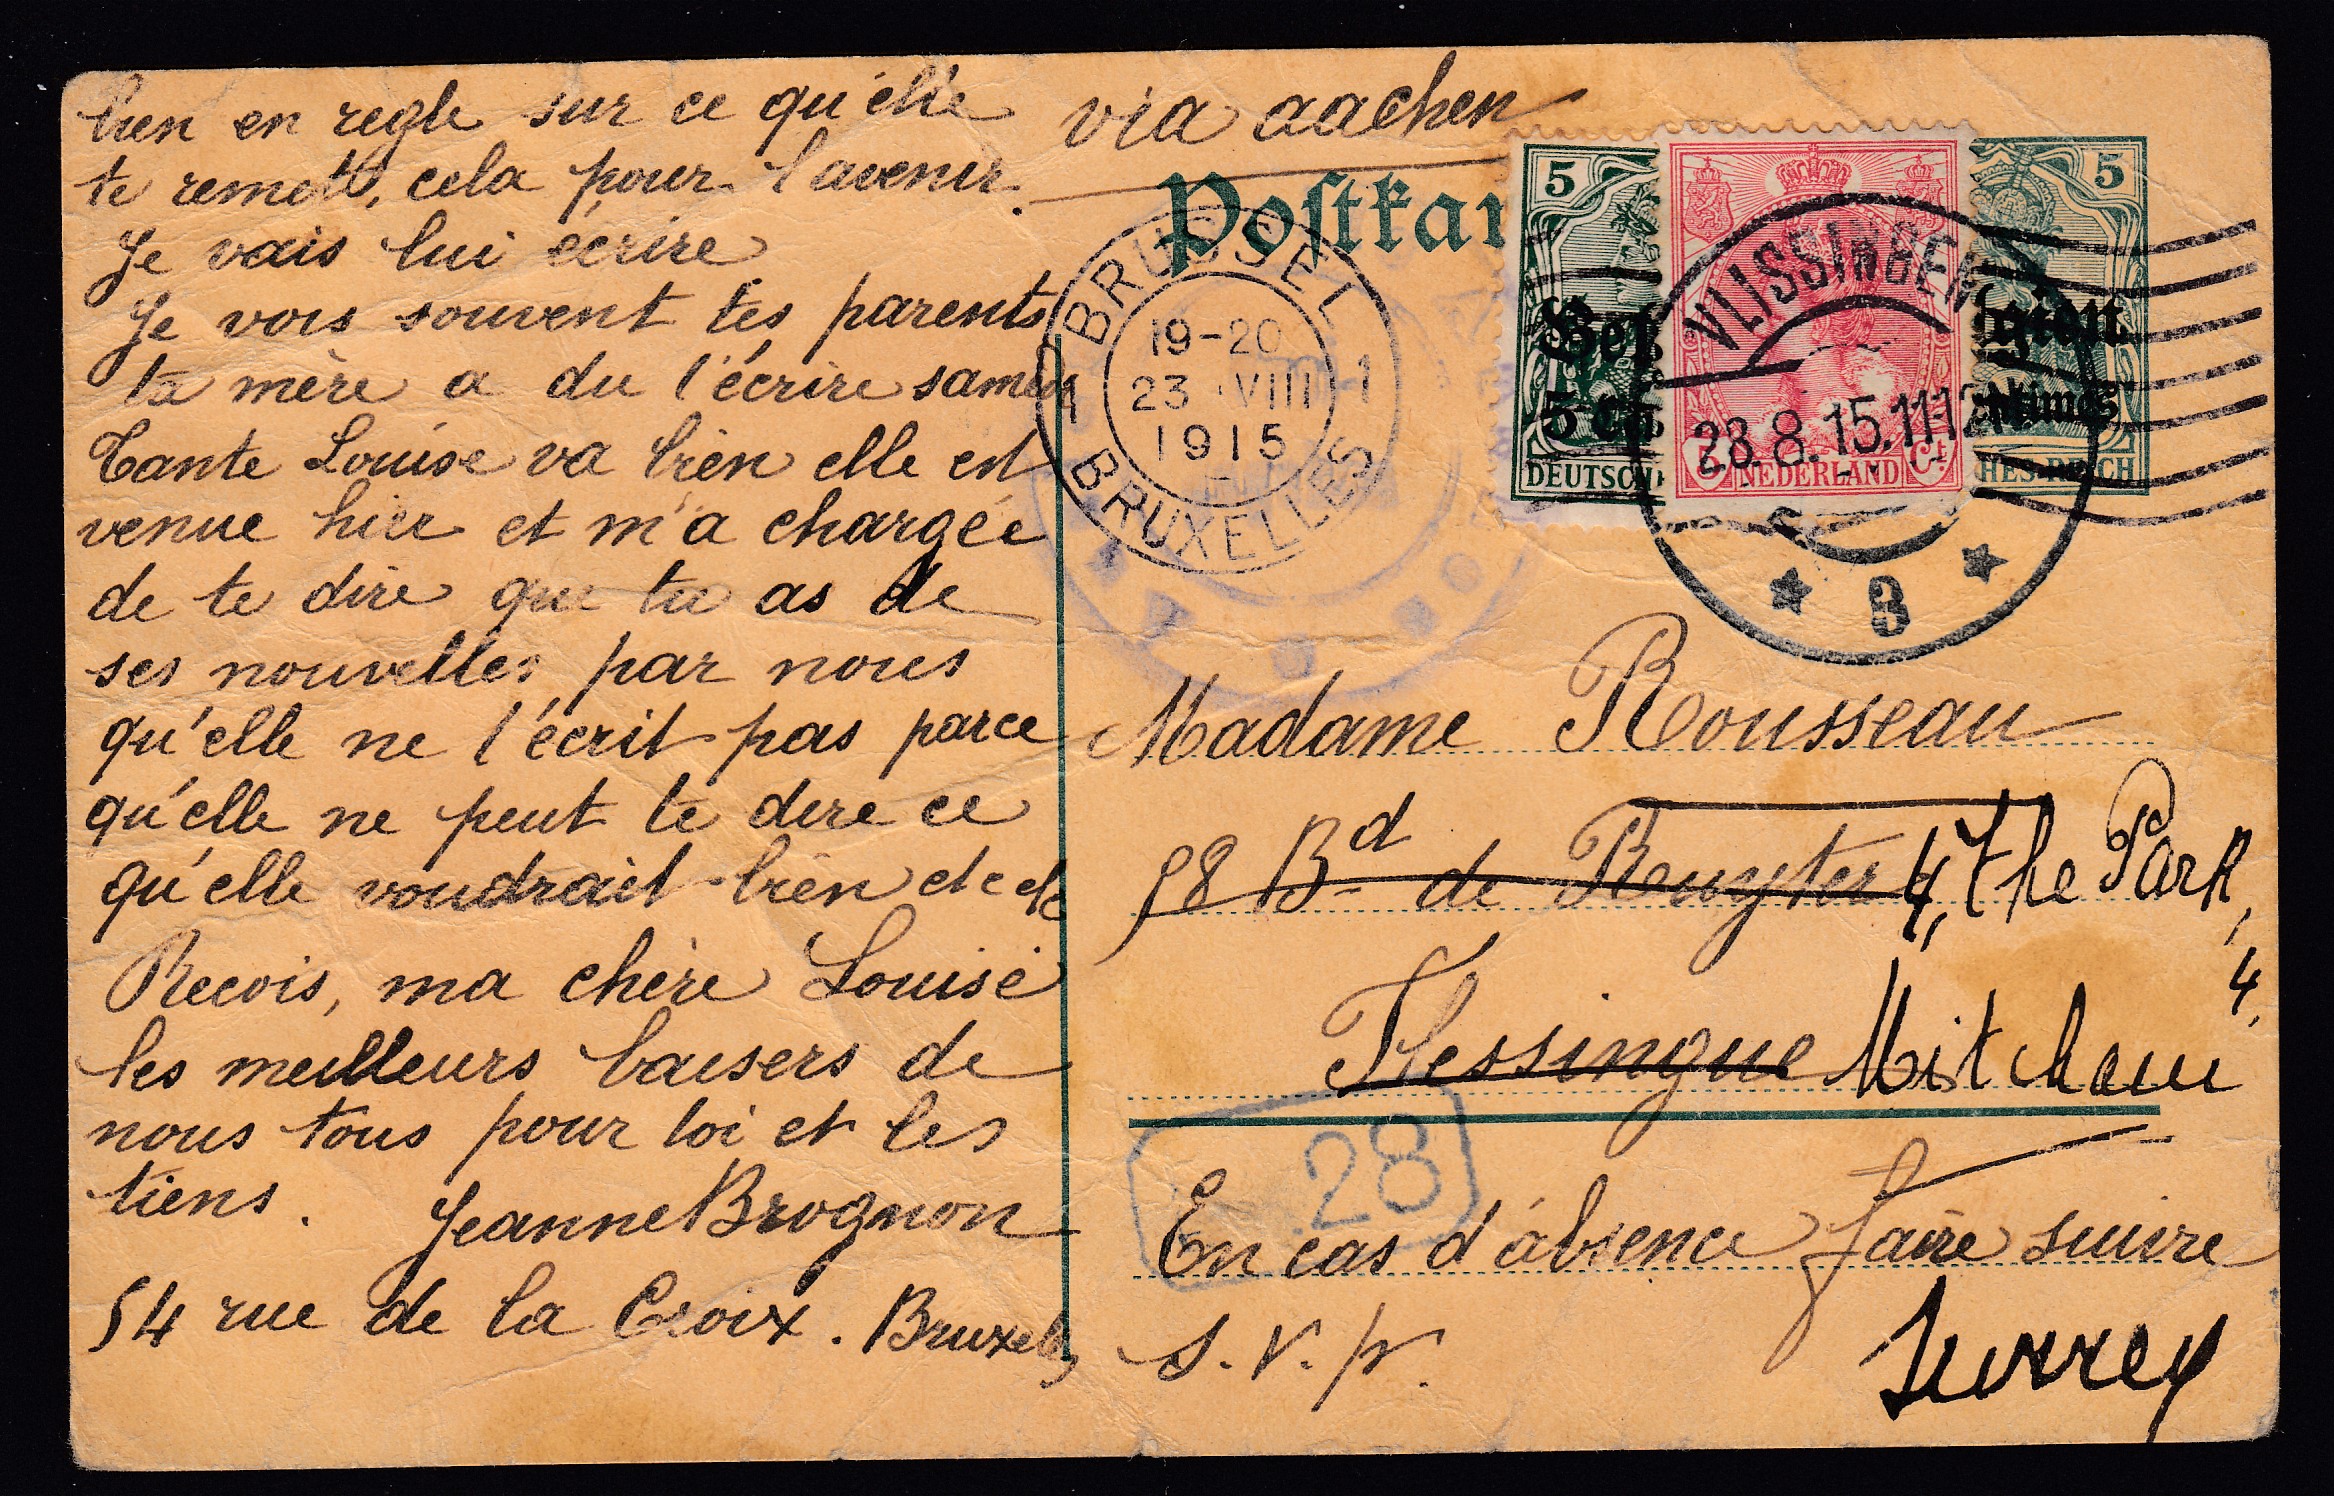 bien en regle sur ce qu'elle
te remett, cela pour l'avenir.
Je vais lui écrire
Je vois souvent tes parents
ta mère a du t'écrire samedi
Tante Louise va bien elle est
venue hier et m'a chargée
de te dire que tu as de
ses nouvelles par nous
qu'elle ne t'écrit pas parce
qu'elle ne peut te dire ce
qu'elle voudrait bien etc etc
Recois, ma chère Louise
les meilleurs baisers de
nous tous pour toi et les
tiens. Jeanne Brognon
54 rue de la Croix. Bruxelles
via aachen
Postkar
BRÜSSEL
19-20
23 VIII
1915
1 1
BRUXELLES
5
Bel
5 c
DEUTSCH
NEDERLAND
5 Ct
5
gien
ntimes
HES REICH
VLISSINGEN
28.8.15.11-12
3
Madame Rousseau
58 Bd de Ruyter 4, The Park,
4,
Flessingue Mitcham
28
En cas d'absence faire suivre
s. v. p.
Surrey